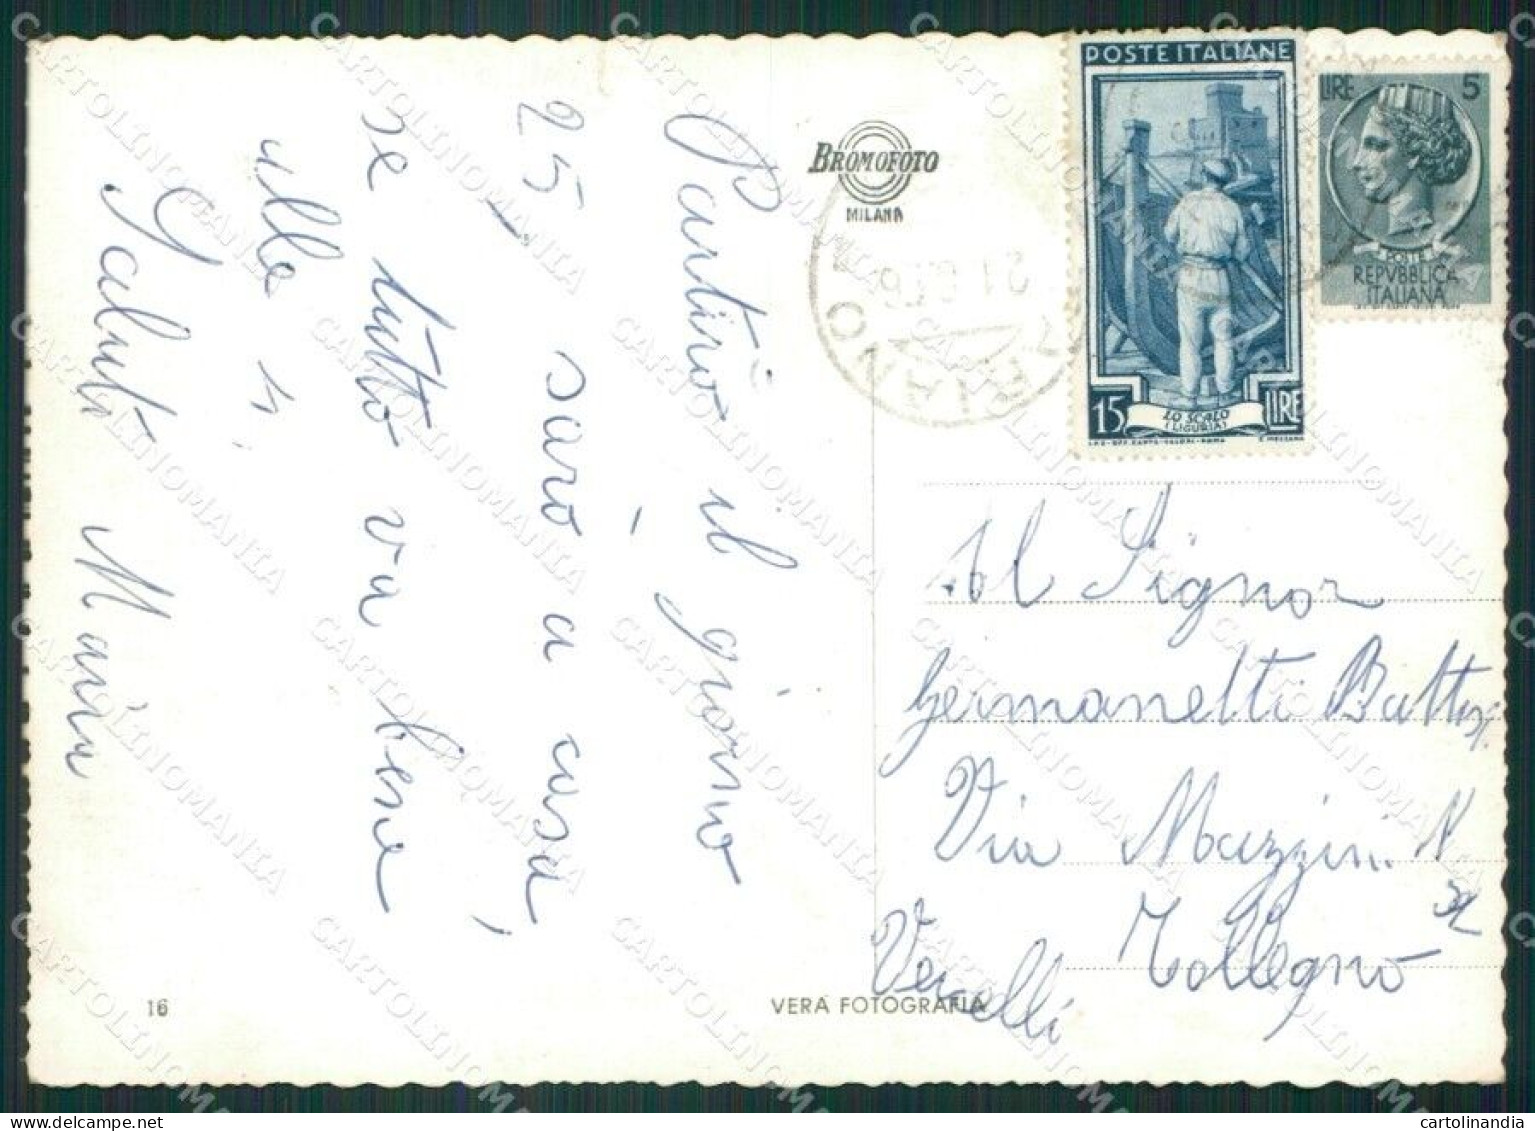 Partirò il giorno
25, sarò a casa,
se tutto va bene
alle
Saluti Maria
BROMOFOTO
MILANO
POSTE ITALIANE
15 LIRE
LO SCALO
(LIGURIA)
LIRE 5
POSTE
REPVBBLICA
ITALIANA
Al Signor
Germanetti Battis.
Via Mazzini N
Tollegno
Vercelli
16
VERA FOTOGRAFIA
CARTOLINOMANIA
cartolinandia